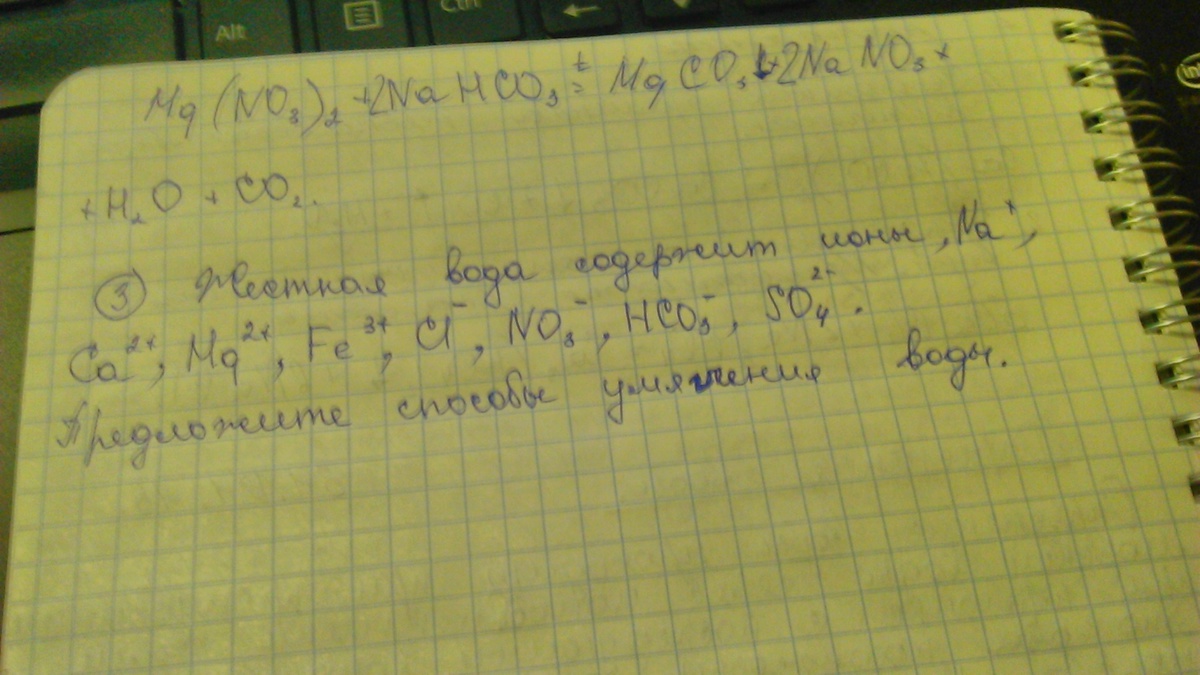 Alt
Ctrl
Mg(NO₃)₂ + 2NaHCO₃ =ᵗ MgCO₃↓ + 2NaNO₃ +
+ H₂O + CO₂.
③ Жесткая вода содержит ионы, Na⁺,
Ca²⁺, Mg²⁺, Fe³⁺, Cl⁻, NO₃⁻, HCO₃⁻, SO₄²⁻.
Предложите способы умягчения воды.